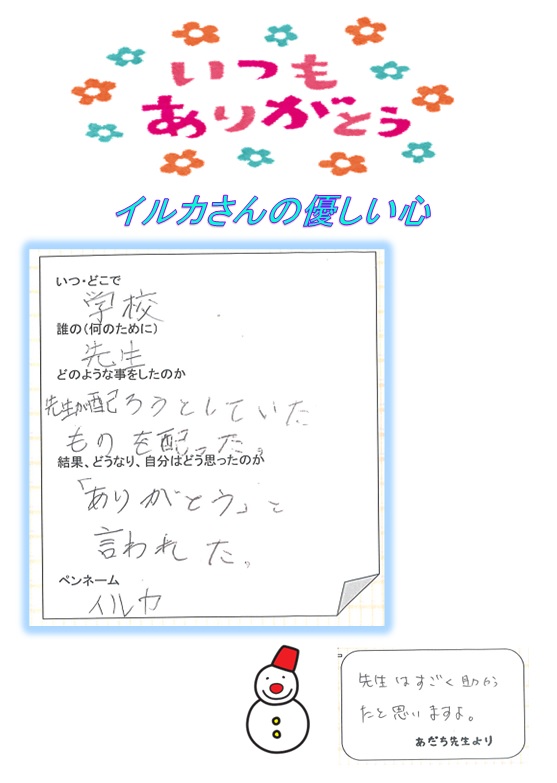 いつも
ありがとう
イルカさんの優しい心
いつ・どこで
学校
誰の(何のために)
先生
どのような事をしたのか
先生が配ろうとしていた
ものを配った。
結果、どうなり、自分はどう思ったのか
「ありがとう」と
言われた。
ペンネーム
イルカ
先生はすごく助かっ
たと思いますよ。
あだち先生より